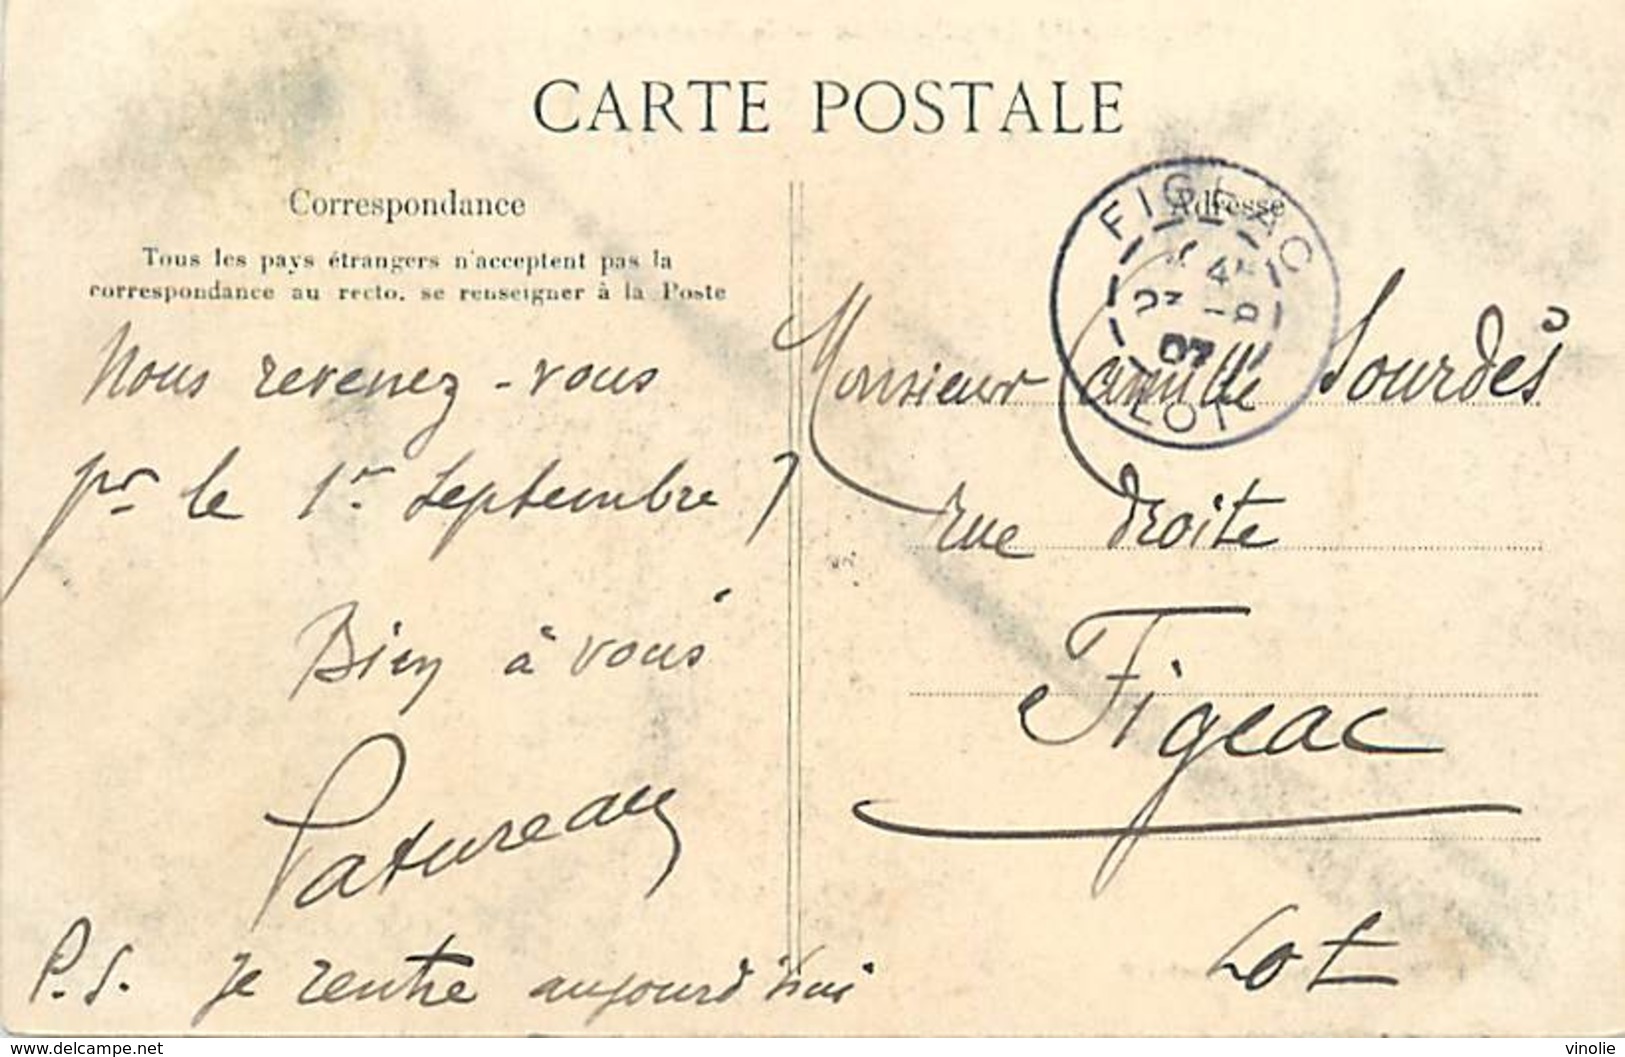 CARTE POSTALE
Correspondance
Tous les pays étrangers n'acceptent pas la
correspondance au recto. se renseigner à la Poste
Nous revenez-vous
pr le 1er Septembre ?
Bien à vous
Patureau
P.S. Je rentre aujourd'hui
Adresse
FIGEAC
LOT
Monsieur Camille Sourdès
rue droite
Figeac
Lot
www.delcampe.net
vinolie